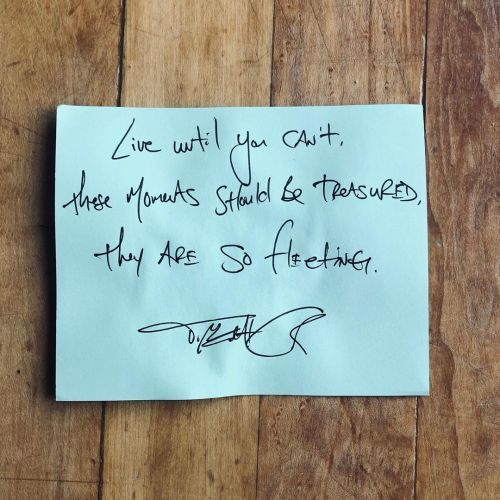 Live until you CAN't.
these Moments Should Be TREASURED,
they ARE So flEEtiNG.